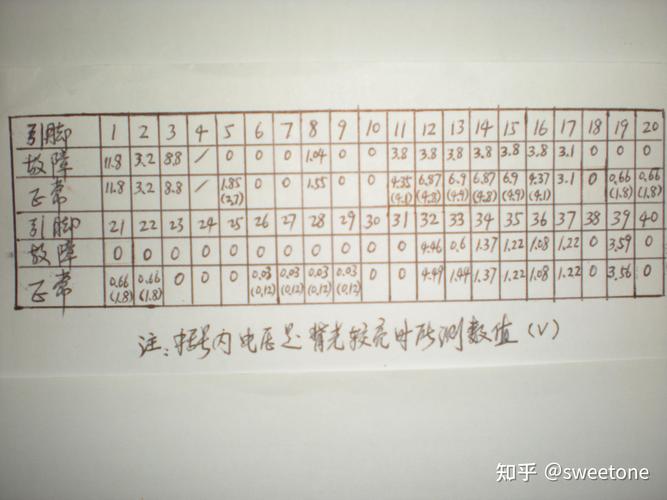 引脚 1 2 3 4 5 6 7 8 9 10 11 12 13 14 15 16 17 18 19 20
故障 11.8 3.2 8.8 / 0 0 0 1.04 0 0 3.8 3.8 3.8 3.8 3.8 3.8 3.1 0 0 0
正常 11.8 3.2 8.8 / 1.85 (2.7) 0 0 1.55 0 0 4.35 (4.1) 6.87 (4.8) 6.9 (4.9) 6.87 (4.8) 6.9 (4.9) 4.37 (4.1) 3.1 0 0.66 (1.8) 0.66 (1.8)
引脚 21 22 23 24 25 26 27 28 29 30 31 32 33 34 35 36 37 38 39 40
故障 0 0 0 0 0 0 0 0 0 0 0 4.46 0.6 1.37 1.22 1.08 1.22 0 3.59 0
正常 0.66 (1.8) 0.66 (1.8) 0 0 0 0.03 (0.12) 0.03 (0.12) 0.03 (0.12) 0.03 (0.12) 0 0 4.49 1.44 1.37 1.22 1.08 1.22 0 3.56 0
注:括号内电压是背光较亮时所测数值(V)
知乎 @sweetone